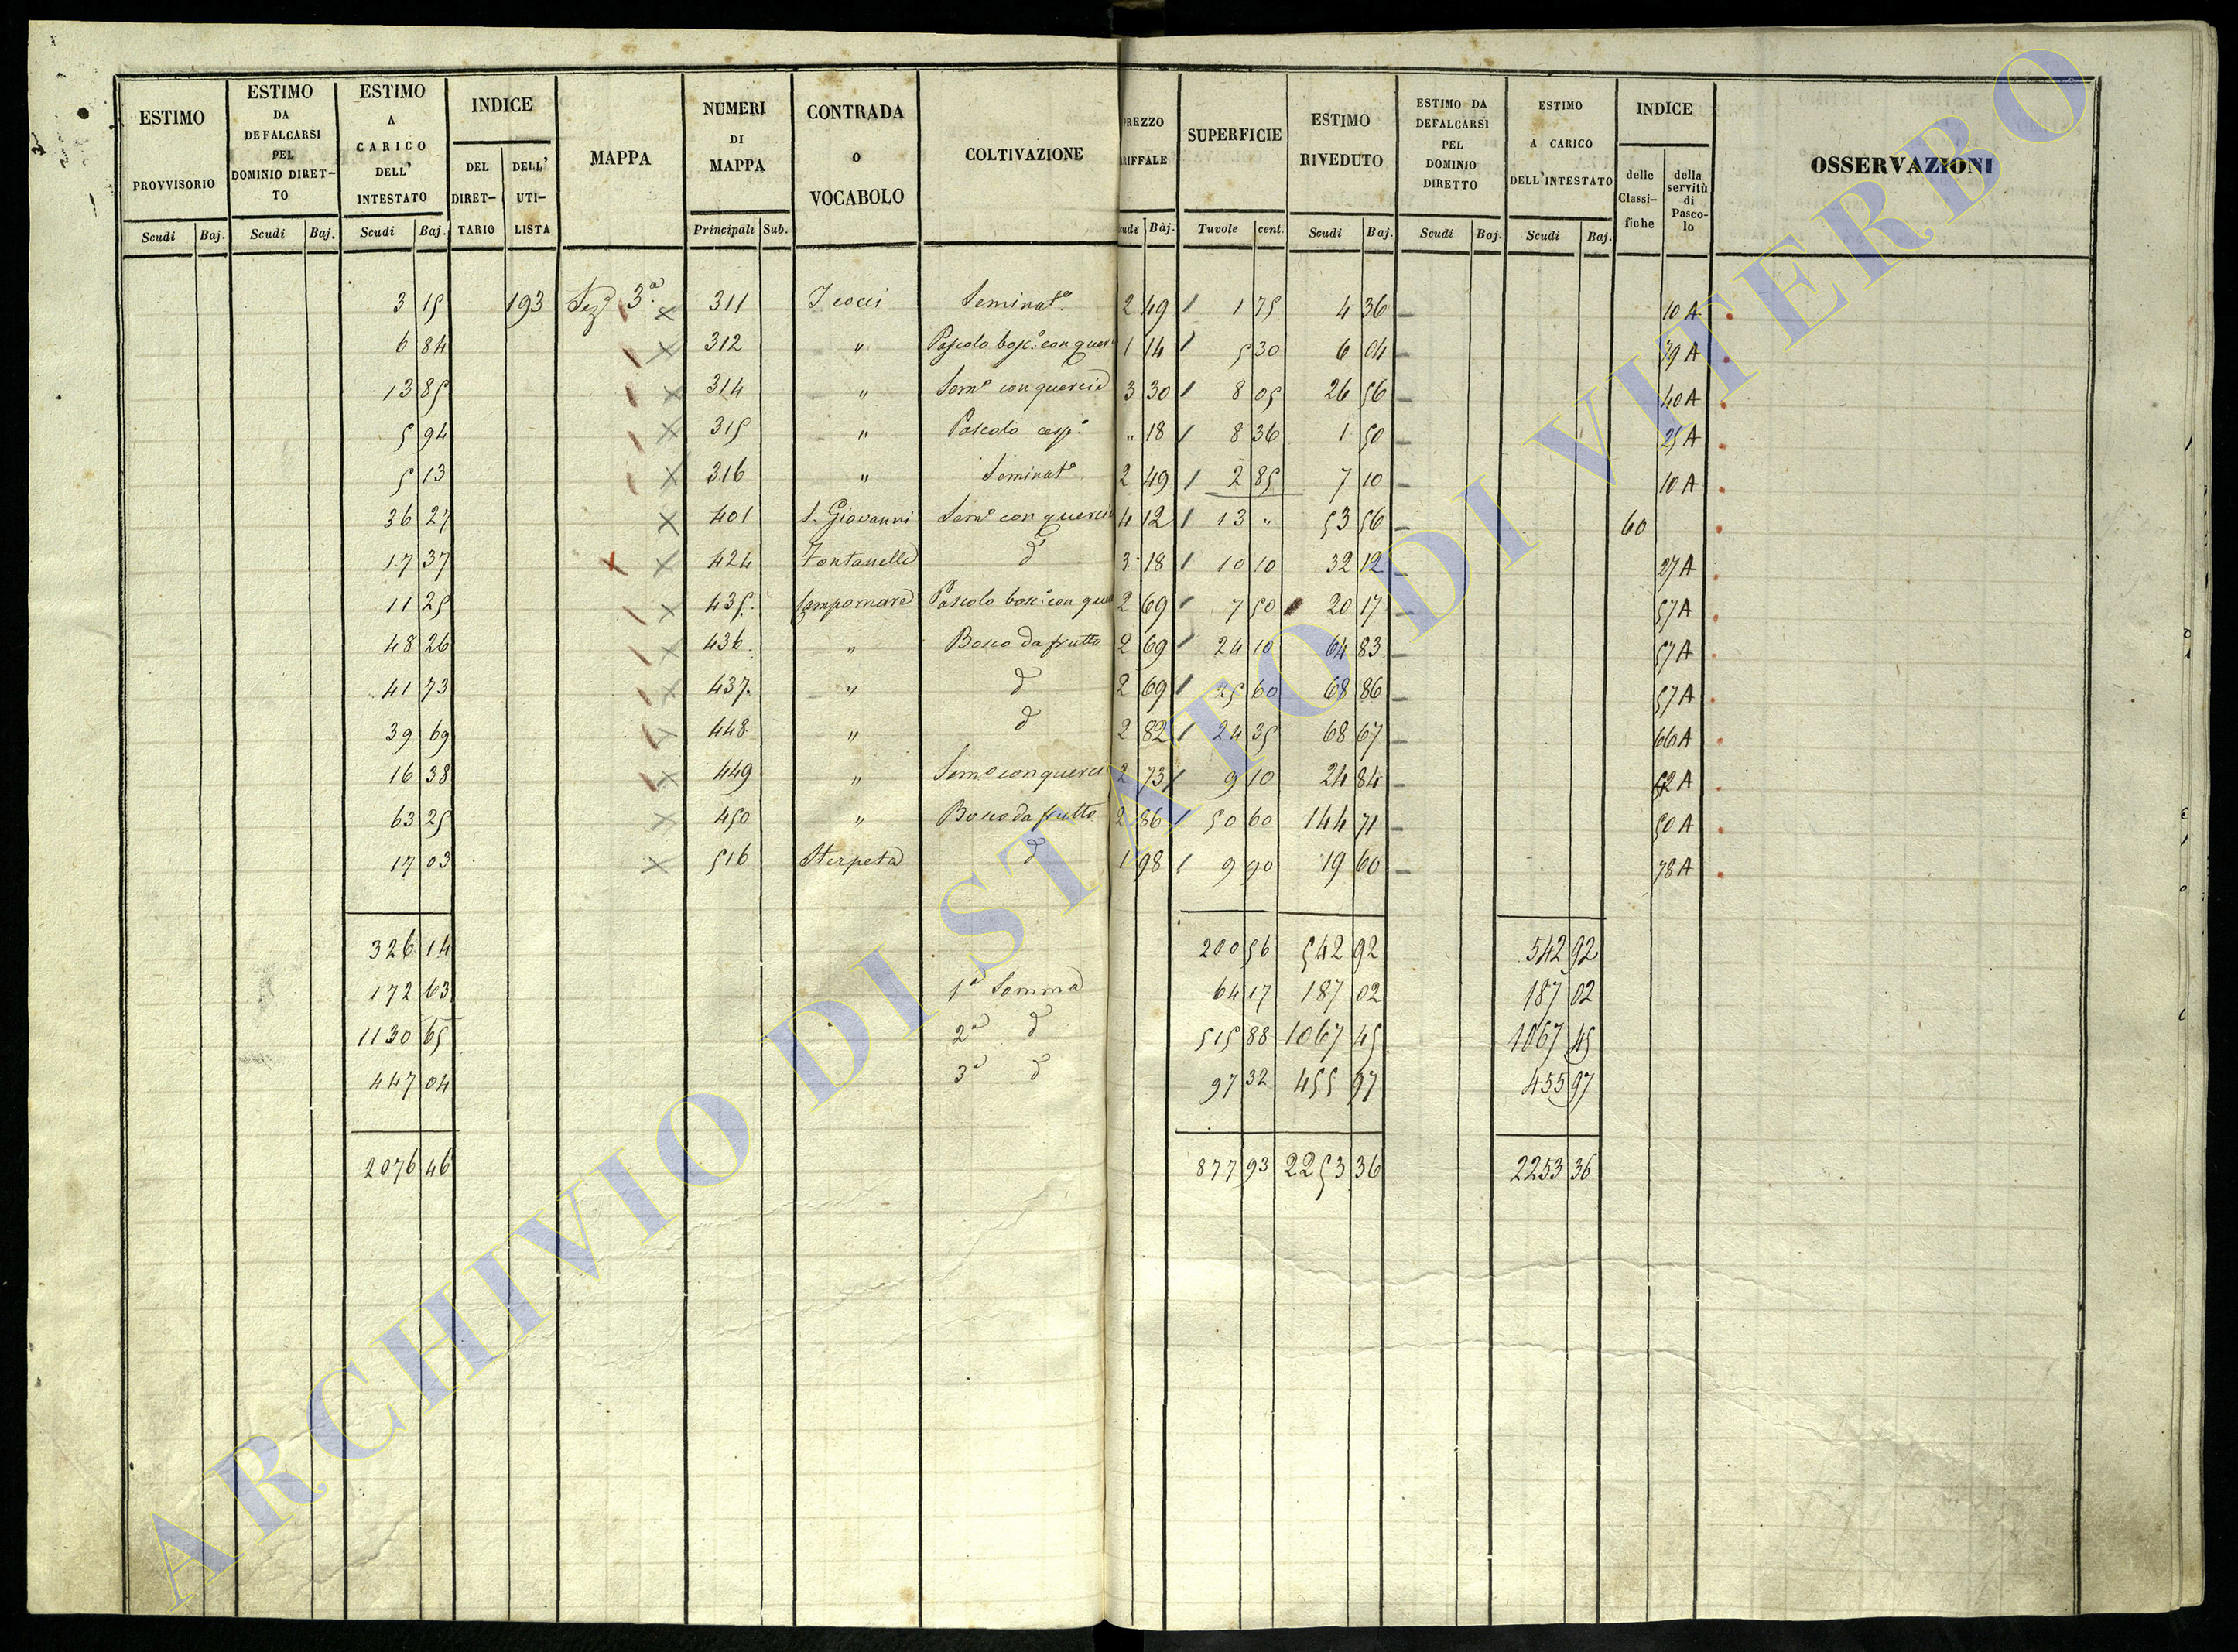 ESTIMO PROVVISORIO Scudi Baj.
ESTIMO DA DEFALCARSI PEL DOMINIO DIRETTO Scudi Baj.
ESTIMO A CARICO DELL' INTESTATO Scudi Baj.
INDICE DEL DIRETTARIO DELL' UTILISTA
MAPPA
NUMERI DI MAPPA Principali Sub.
CONTRADA O VOCABOLO
COLTIVAZIONE
PREZZO RIFFALE udi Baj.
SUPERFICIE Tavole cent.
ESTIMO RIVEDUTO Scudi Baj.
ESTIMO DA DEFALCARSI PEL DOMINIO DIRETTO Scudi Baj.
ESTIMO A CARICO DELL'INTESTATO Scudi Baj.
INDICE delle Classifiche della servitù di Pascolo
OSSERVAZIONI
3 15 193 Sez 3.a x 311 I cocci Seminato. 2 49 / 1 75 4 36 10 A
6 84 x 312 " Pascolo bosc.o con quer 1 14 / 5 30 6 04 79 A
13 85 x 314 " Sem.o con quercie 3 30 / 8 05 26 56 40 A
5 94 x 315 " Pascolo cesp.o " 18 / 8 36 1 50 25 A
5 13 x 316 " Seminat.o 2 49 / 2 85 7 10 10 A
36 27 x 401 S. Giovanni Sem.o con quercie 4 12 / 13 " 53 56 60
17 37 x x 424 Fontanelle d 3 18 / 10 10 32 12 27 A
11 25 x 435. Campomare Pascolo bosc.o con que 2 69 / 7 50 20 17 57 A
48 26 x 436. " Bosco da frutto 2 69 / 24 10 64 83 57 A
41 73 x 437. " d 2 69 / 25 60 68 86 57 A
39 69 x 448 " d 2 82 / 24 35 68 67 66 A
16 38 x 449 " Sem.o con querci 2 73 / 9 10 24 84 62 A
63 25 x 450 " Bosco da frutto 2 86 / 50 60 144 71 50 A
17 03 x 516 Sterpeta d 1 98 / 9 90 19 60 78 A
326 14 200 56 542 92 542 92
172 63 1.a Somma 64 17 187 02 187 02
1130 65 2.a d 515 88 1067 45 1067 45
447 04 3.a d 97 32 455 97 455 97
2076 46 877 93 2253 36 2253 36
ARCHIVIO DI STATO DI VITERBO